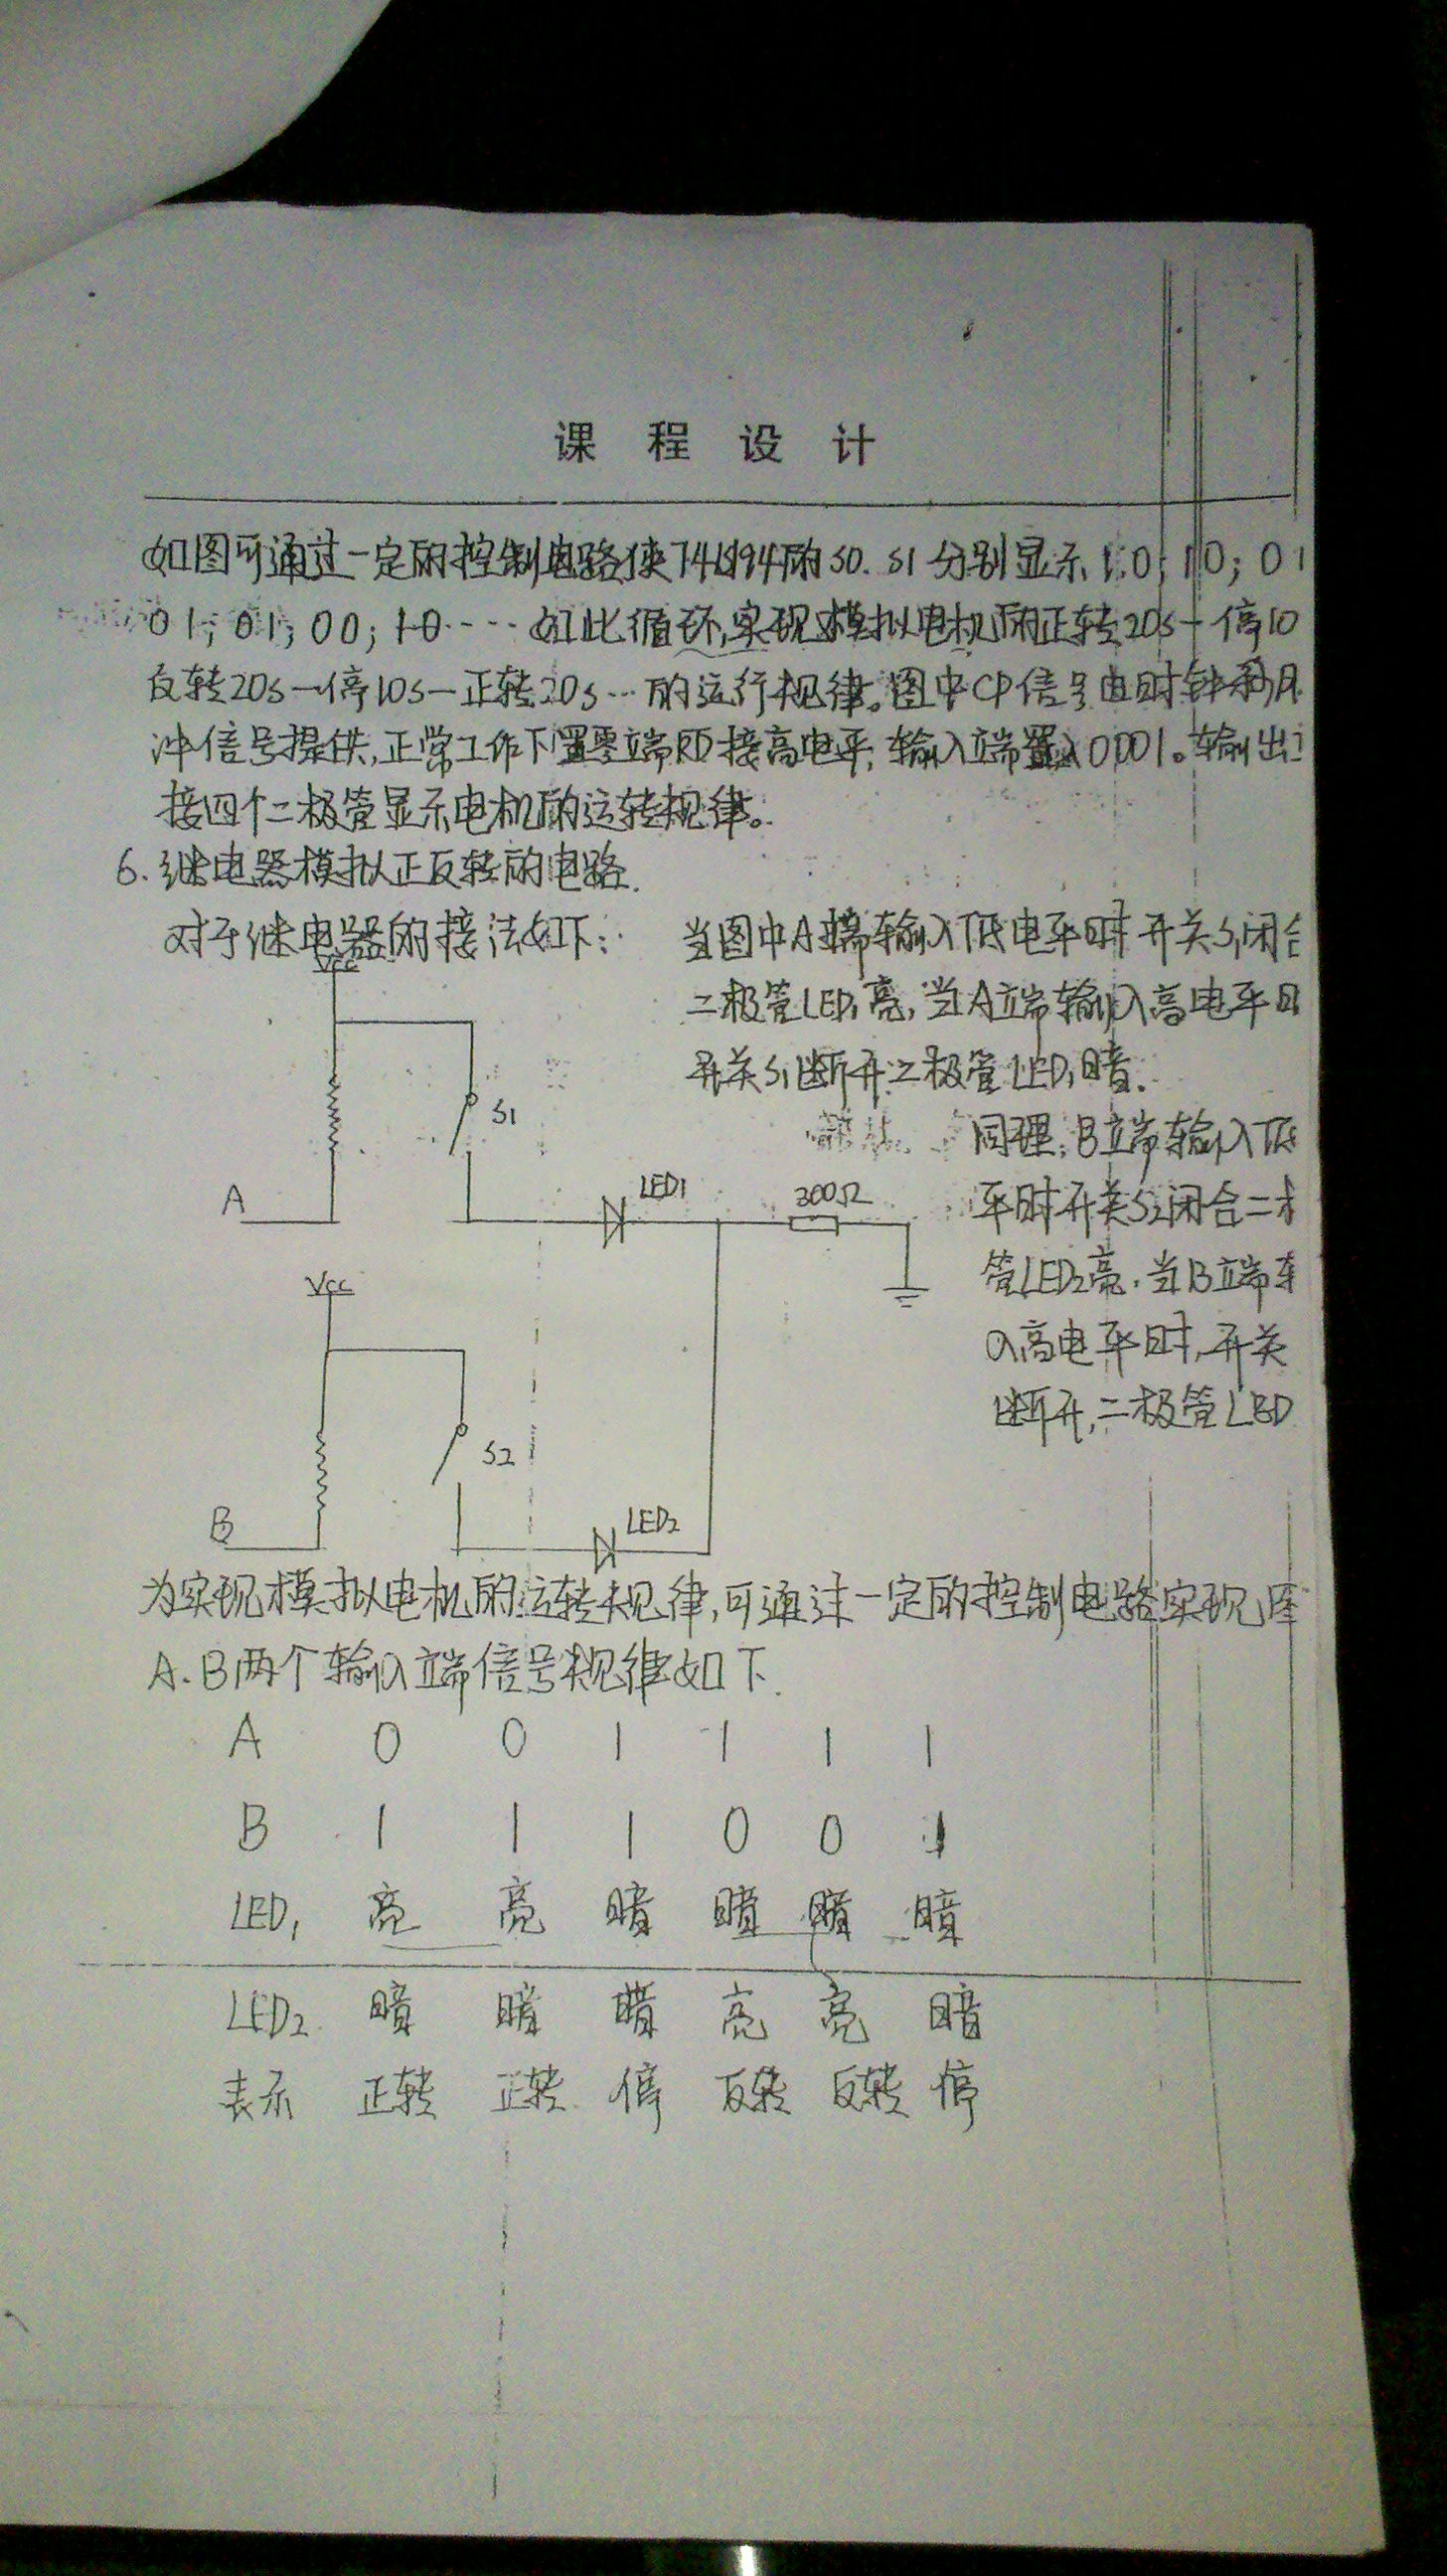 课程设计
如图可通过一定的控制电路使74LS194的S0.S1分别显示1.0;10;01
01;01;00;10····如此循环,实现模拟电机的正转20s—停10
反转20s—停10s—正转20s…的运行规律。图中CP信号由时钟秒脉
冲信号提供,正常工作下置零端RD接高电平,输入端置入0001。输出
接四个二极管显示电机的运转规律。
6.继电器模拟正反转的电路.
对于继电器的接法如下:
当图中A端输入低电平时开关S1闭合
二极管LED1亮,当A端输入高电平时
开关S1断开二极管LED1暗.
同理,B端输入低
平时开关S2闭合二极
管LED2亮.当B端输
入高电平时,开关
断开,二极管LED
Vcc
S1
A
LED1
300Ω
Vcc
S2
B
LED2
为实现模拟电机的运转规律,可通过一定的控制电路实现
A.B两个输入端信号规律如下.
A 0 0 1 1 1 1
B 1 1 1 0 0 1
LED1 亮 亮 暗 暗 暗 暗
LED2 暗 暗 暗 亮 亮 暗
表示 正转 正转 停 反转 反转 停